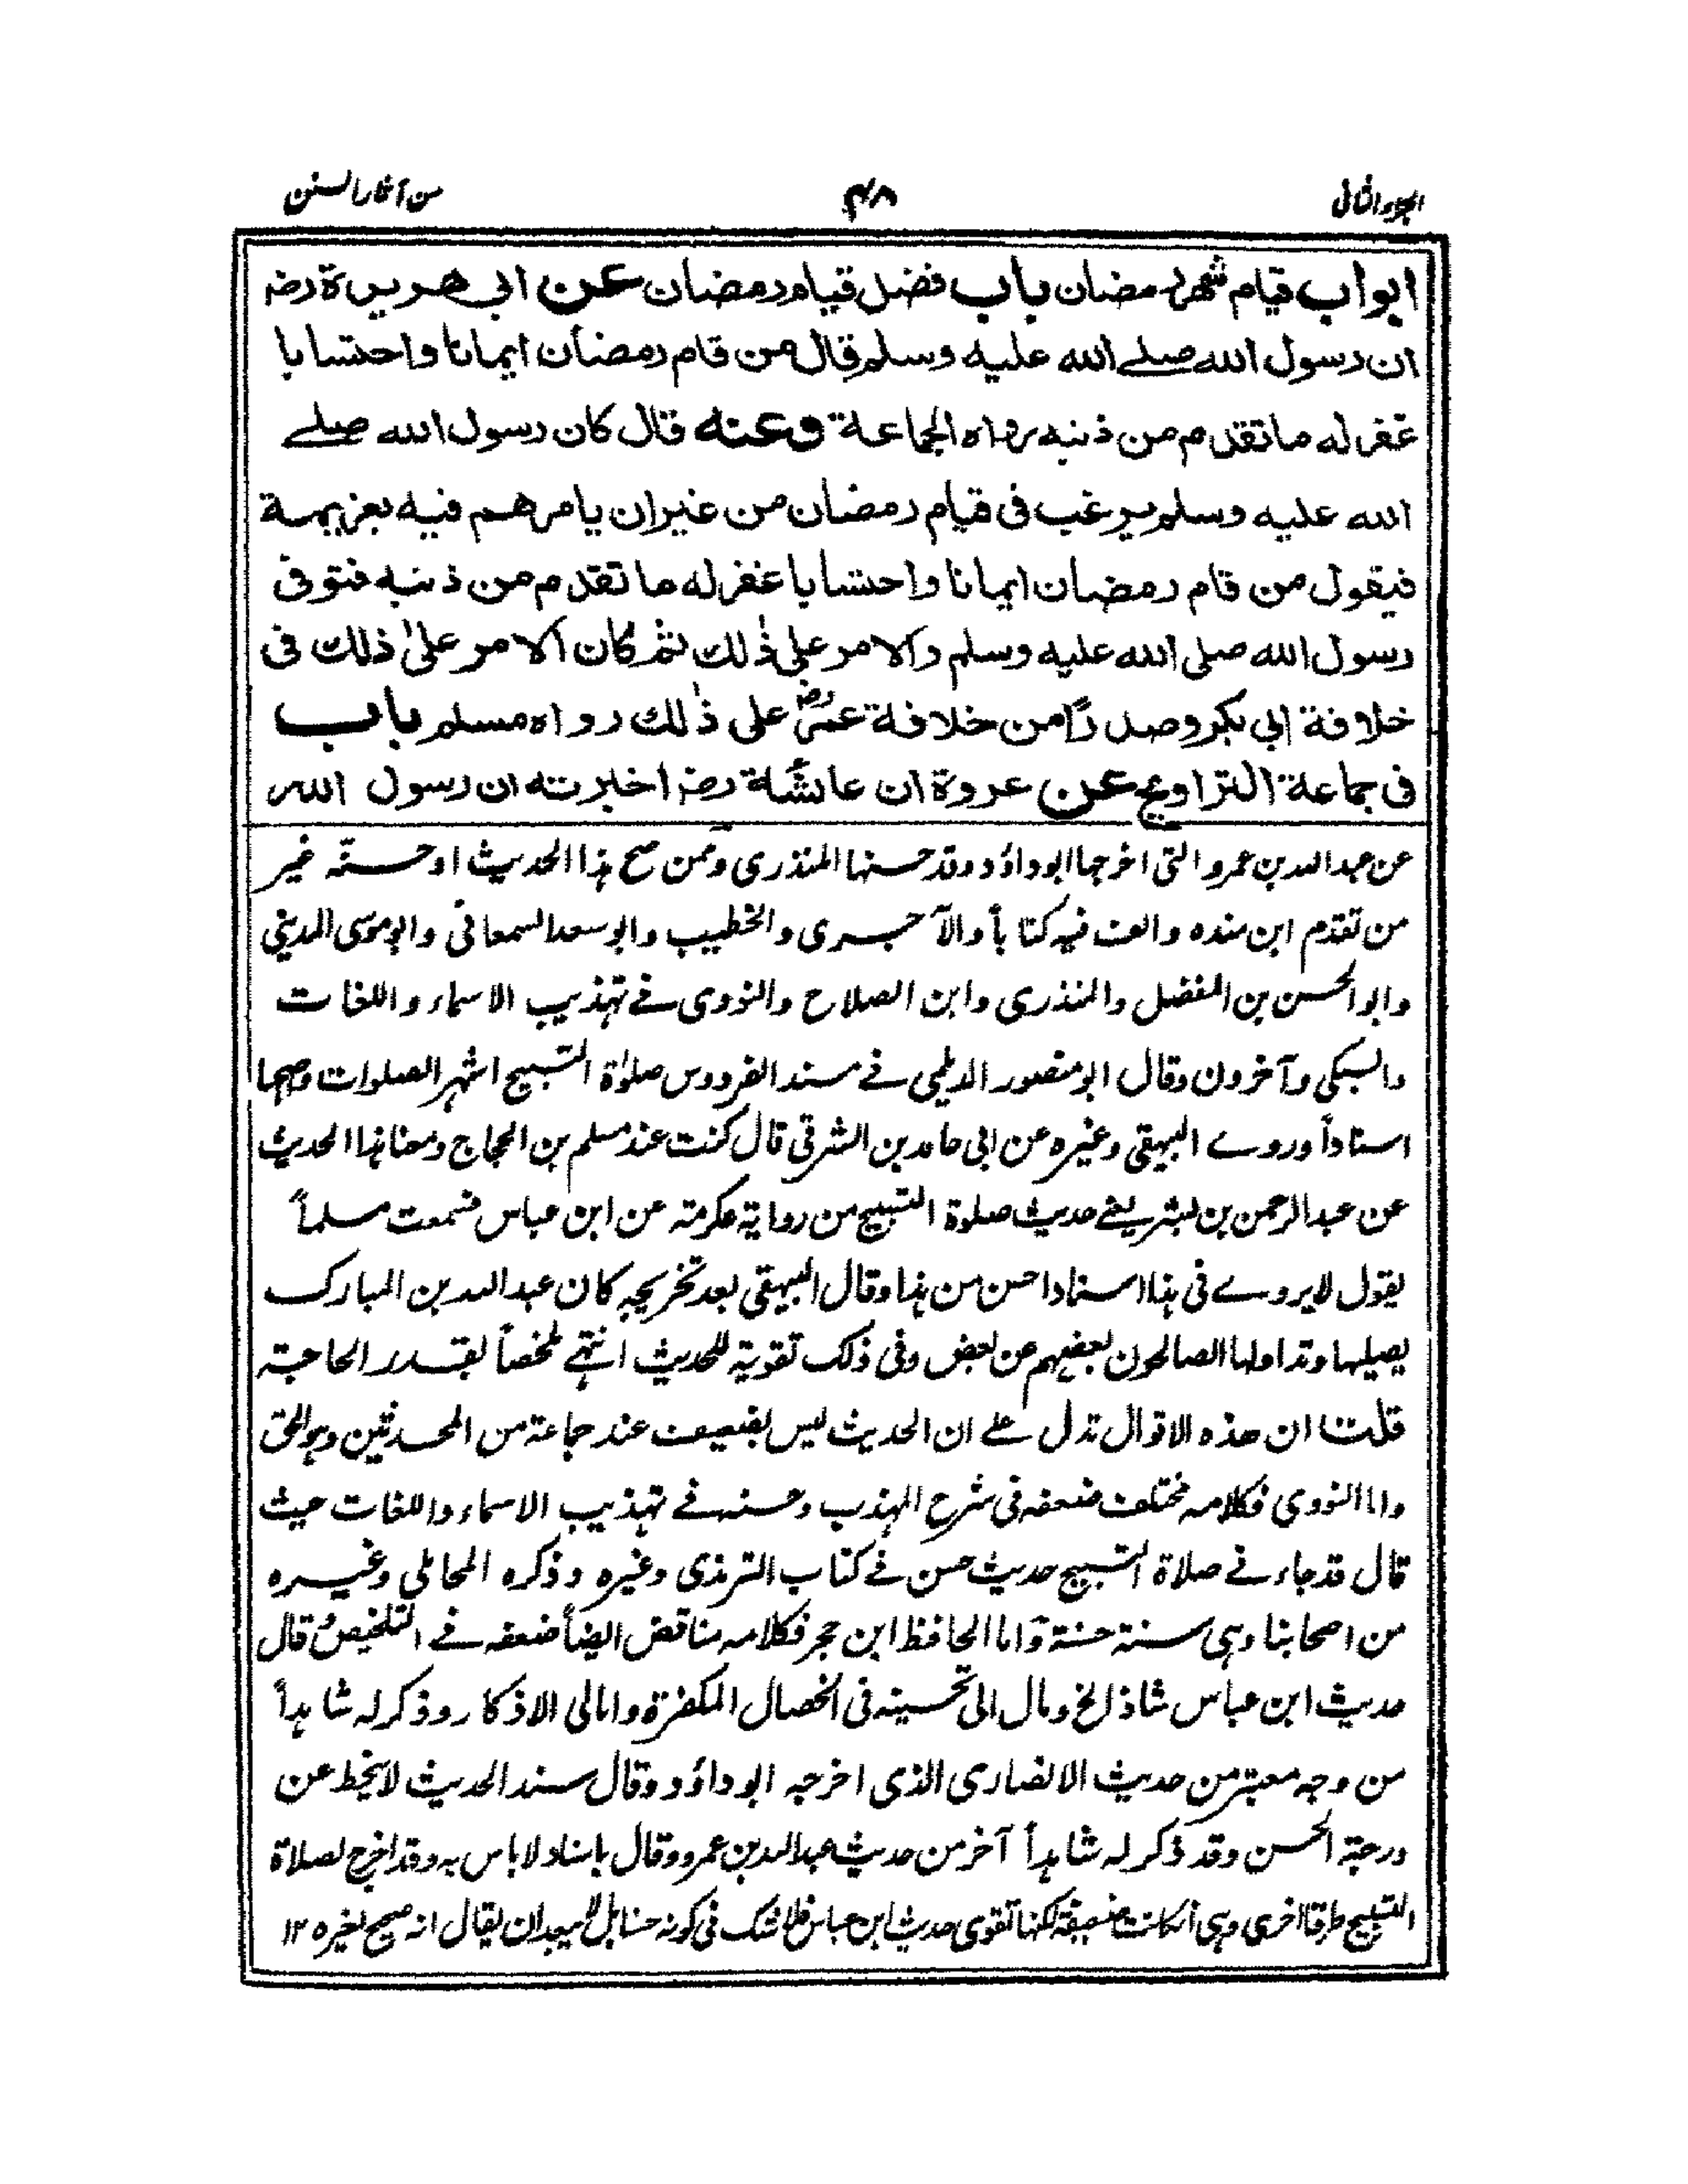 الجزء الثاني
٤٨
من آثار السنن
ابواب قيام شهر رمضان باب فضل قيام رمضان عن ابي هريرة رضـ
ان رسول الله صلے الله عليه وسلم قال من قام رمضان ايمانا واحتسابا
غفر له ما تقدم من ذنبه رواه الجماعة وعنه قال كان رسول الله صلے
الله عليه وسلم يرغب فى قيام رمضان من غير ان يامرهم فيه بعزيمة
فيقول من قام رمضان ايمانا واحتسابا غفر له ما تقدم من ذنبه فتوفى
رسول الله صلى الله عليه وسلم والامر على ذٰلك ثم كان الامر علىٰ ذلك فى
خلافة ابي بكر وصدرًا من خلافة عمرؓ على ذٰلك رواه مسلم باب
فى جماعة التراويح عن عروة ان عائشة رضـ اخبرته ان رسول الله
عن عبد الله بن عمرو التى اخرجها ابو داؤد وقد حسنها المنذرى وممن صح هذا الحديث او حسنّه غير
من تقدم ابن منده والف فيه كتابأ والآجرى والخطيب وابو سعد السمعانى وابو موسى المدينى
وابو الحسن بن المفضل والمنذرى وابن الصلاح والنووى فے تهذيب الاسماء واللغات
والسبكى وآخرون وقال ابو منصور الديلمى فے مسند الفردوس صلوٰة التسبيح اشهر الصلوات واصحها
اسناداً وروے البيهقى وغيره عن ابى حامد بن الشرقى قال كنت عند مسلم بن الحجاج ومعنا هذا الحديث
عن عبد الرحمن بن بشر يعنے حديث صلوة التسبيح من رواية عكرمة عن ابن عباس فسمعت مسلماً
يقول لا يروے فى هذا اسنادا حسن من هذا وقال البيهقى بعد تخريجه كان عبد الله بن المبارك
يصليها وتداولها الصالحون بعضهم عن بعض وفى ذلك تقوية للحديث انتهے ملخصاً لقدر الحاجة
قلت ان هذه الاقوال تدل علے ان الحديث ليس بضعيف عند جماعة من المحدثين وهو الحق
واما النووي فكلامه مختلف ضعفه فى شرح المهذب وحسنه فے تهذيب الاسماء واللغات حيث
قال قد جاء فے صلاة التسبيح حديث حسن فے كتاب الترمذى وغيره وذكره المحاملى وغيره
من اصحابنا وهى سنة حسنة واما الحافظ ابن حجر فكلامه مناقض ايضاً ضعفه فے التلخيص قال
حديث ابن عباس شاذ الخ ومال الى تحسينه فى الخصال المكفرة وامالى الاذكار وذكر له شاهداً
من وجه معتبر من حديث الانصارى الذى اخرجه ابو داؤد وقال سند الحديث لا ينحط عن
درجة الحسن وقد ذكر له شاهداً آخر من حديث عبد الله بن عمرو وقال باسناد لا باس به وقد اخرج لصلاة
التسبيح طرقا اخرى وهى ان كانت ضعيفة لكنها تقوى حديث ابن عباس فلا شك فى كونه حسنا بل لا يبعد ان يقال انه صحيح لغيره ١٢